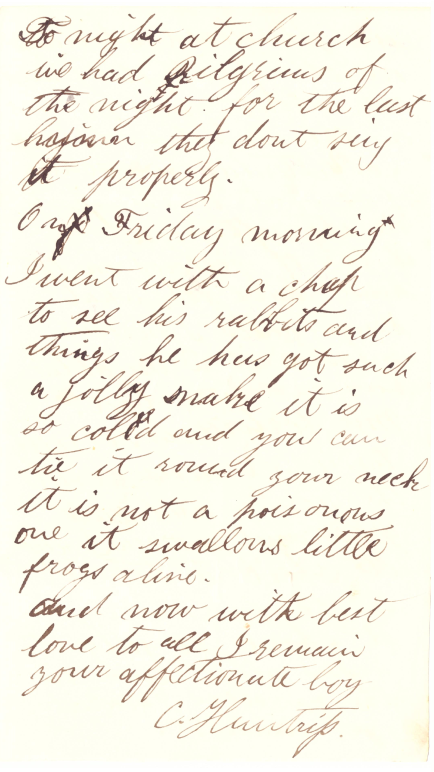 To night at church
we had Pilgrims of
the night. for the last
they dont sing
it properly.
On Friday morning
I went with a chap
to see his rabbits and
things he has got such
a jolly snake it is
so cold and you can
tie it round your neck
it is not a poisonous
one it swallows little
frogs alive.
and now with best
love to all I remain
your affectionate boy
C. Huntrip.